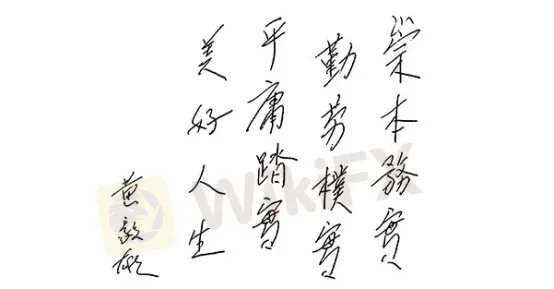 崇本務實
勤勞樸實
平庸踏實
美好人生
黄毅彪
WikiFX